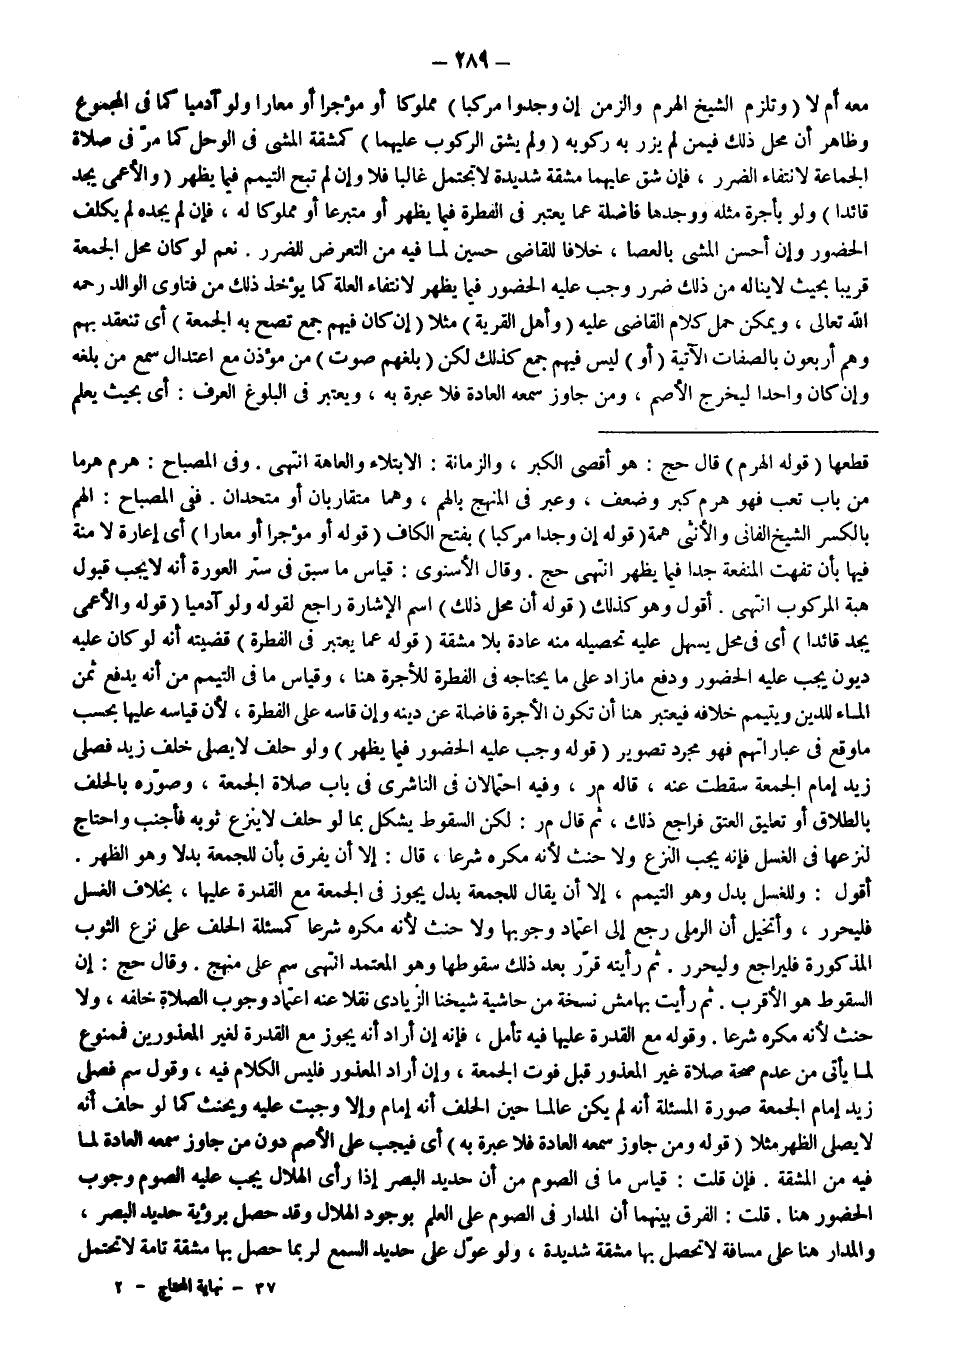 – ٢٨٩ –
معه أم لا ( وتلزم الشيخ الهرم والزمن إن وجدوا مركبا ) مملوكا أو مؤجرا أو معارا ولو آدميا كما فى المجموع
وظاهر أن محل ذلك فيمن لم يزر به ركوبه ( ولم يشق الركوب عليهما ) كمشقة المشى فى الوحل كما مرّ فى صلاة
الجماعة لانتفاء الضرر ، فإن شق عليهما مشقة شديدة لاتحتمل غالبا فلا وإن لم تبح التيمم فيما يظهر ( والأعمى يجد
قائدا ) ولو بأجرة مثله ووجدها فاضلة عما يعتبر فى الفطرة فيما يظهر أو متبرعا أو مملوكا له ، فإن لم يجده لم يكلف
الحضور وإن أحسن المشى بالعصا ، خلافا للقاضى حسين لما فيه من التعرض للضرر . نعم لو كان محل الجمعة
قريبا بحيث لايناله من ذلك ضرر وجب عليه الحضور فيما يظهر لانتفاء العلة كما يؤخذ ذلك من فتاوى الوالد رحمه
الله تعالى ، ويمكن حمل كلام القاضى عليه ( وأهل القرية ) مثلا ( إن كان فيهم جمع تصح به الجمعة ) أى تنعقد بهم
وهم أربعون بالصفات الآتية ( أو ) ليس فيهم جمع كذلك لكن ( بلغهم صوت ) من مؤذن مع اعتدال سمع من بلغه
وإن كان واحدا ليخرج الأصم ، ومن جاوز سمعه العادة فلا عبرة به ، ويعتبر فى البلوغ العرف : أى بحيث يعلم
قطعها ( قوله الهرم ) قال حج : هو أقصى الكبر ، والزمانة : الابتلاء والعاهة انتهى . وفى المصباح : هرم هرما
من باب تعب فهو هرم كبر وضعف ، وعبر فى المنهج بالهم ، وهما متقاربان أو متحدان . ففى المصباح : الهم
بالكسر الشيخ الفانى والأنثى همة( قوله إن وجدا مركبا ) بفتح الكاف ( قوله أو مؤجرا أو معارا ) أى إعارة لا منة
فيها بأن تفهت المنفعة جدا فيما يظهر انتهى حج . وقال الأسنوى : قياس ما سبق فى ستر العورة أنه لايجب قبول
هبة المركوب انتهى . أقول وهو كذلك ( قوله أن محل ذلك ) اسم الإشارة راجع لقوله ولو آدميا ( قوله والأعمى
يجد قائدا ) أى فى محل يسهل عليه تحصيله منه عادة بلا مشقة ( قوله عما يعتبر فى الفطرة ) قضيته أنه لو كان عليه
ديون يجب عليه الحضور ودفع مازاد على ما يحتاجه فى الفطرة للأجرة هنا ، وقياس ما فى التيمم من أنه يدفع ثمن
الماء للدين ويتيمم خلافه فيعتبر هنا أن تكون الأجرة فاضلة عن دينه وإن قاسه على الفطرة ، لأن قياسه عليها بحسب
ماوقع فى عباراتهم فهو مجرد تصوير ( قوله وجب عليه الحضور فيما يظهر ) ولو حلف لايصلى خلف زيد فصلى
زيد إمام الجمعة سقطت عنه ، قاله مر ، وفيه احتمالان فى الناشرى فى باب صلاة الجمعة ، وصوّره بالحلف
بالطلاق أو تعليق العتق فراجع ذلك ، ثم قال مر : لكن السقوط يشكل بما لو حلف لاينزع ثوبه فأجنب واحتاج
لنزعها فى الغسل فإنه يجب النزع ولا حنث لأنه مكره شرعا ، قال : إلا أن يفرق بأن للجمعة بدلا وهو الظهر .
أقول : وللغسل بدل وهو التيمم ، إلا أن يقال للجمعة بدل يجوز فى الجمعة مع القدرة عليها ، بخلاف الغسل
فليحرر ، وأتخيل أن الرملى رجع إلى اعتماد وجوبها ولا حنث لأنه مكره شرعا كمسئلة الحلف على نزع الثوب
المذكورة فليراجع وليحرر . ثم رأيته قرّر بعد ذلك سقوطها وهو المعتمد انتهى سم على منهج . وقال حج : إن
السقوط هو الأقرب . ثم رأيت بهامش نسخة من حاشية شيخنا الزيادى نقلا عنه اعتماد وجوب الصلاة خلفه ، ولا
حنث لأنه مكره شرعا . وقوله مع القدرة عليها فيه تأمل ، فإنه إن أراد أنه يجوز مع القدرة لغير المعذورين فممنوع
لما يأتى من عدم صحة صلاة غير المعذور قبل فوت الجمعة ، وإن أراد المعذور فليس الكلام فيه ، وقول سم فصلى
زيد إمام الجمعة صورة المسئلة أنه لم يكن عالما حين الحلف أنه إمام وإلا وجبت عليه ويحنث كما لو حلف أنه
لايصلى الظهر مثلا ( قوله ومن جاوز سمعه العادة فلا عبرة به ) أى فيجب على الأصم دون من جاوز سمعه العادة لما
فيه من المشقة . فإن قلت : قياس ما فى الصوم من أن حديد البصر إذا رأى الهلال يجب عليه الصوم وجوب
الحضور هنا . قلت : الفرق بينهما أن المدار فى الصوم على العلم بوجود الهلال وقد حصل برؤية حديد البصر ،
والمدار هنا على مسافة لاتحصل بها مشقة شديدة ، ولو عوّل على حديد السمع لربما حصل بها مشقة تامة لاتحتمل
٣٧ – نهاية المحتاج – ٢